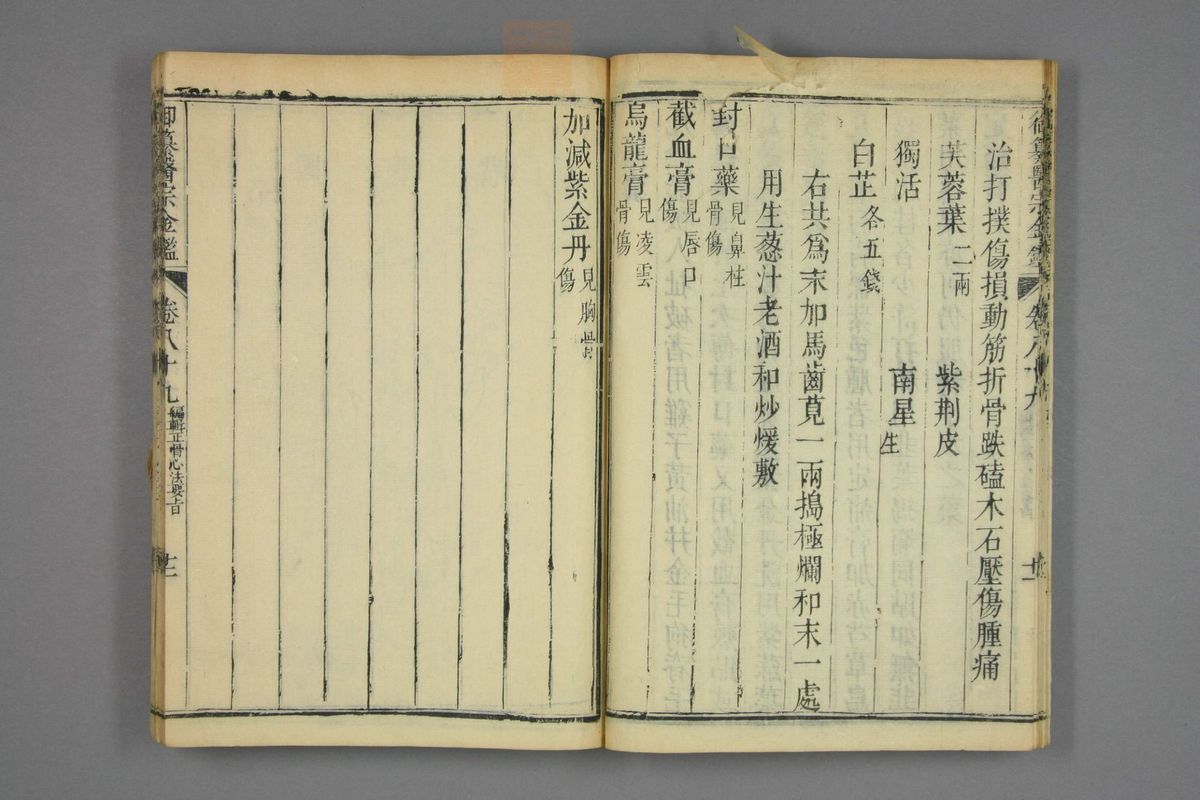 御纂醫宗金鑑 卷八十九
治打撲傷損動筋折骨跌磕木石壓傷腫痛
芙蓉葉二兩 紫荆皮
獨活 南星生
白芷各五錢
右共爲末加馬齒莧一兩搗極爛和末一處
用生葱汁老酒和炒煖敷
封口藥見鼻柱骨傷
截血膏見唇口傷
烏龍膏見凌雲骨傷
加減紫金丹見胸骨傷
御纂醫宗金鑑 卷八十九 編輯正骨心法要旨